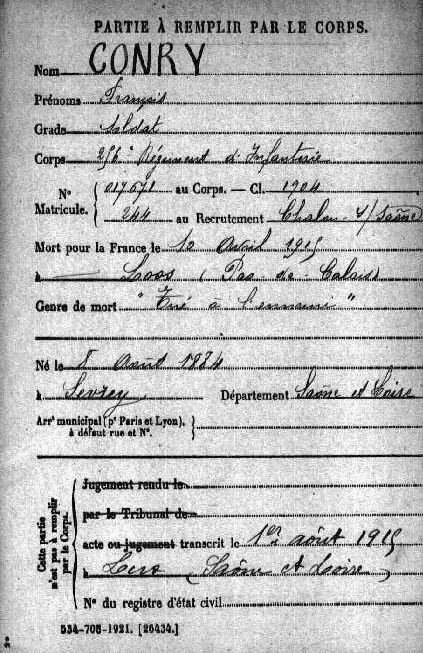 PARTIE À REMPLIR PAR LE CORPS.
Nom CONRY
Prénoms François
Grade Soldat
Corps 256e Régiment d'Infanterie
N° Matricule. 017671 au Corps. — Cl. 1904
244 au Recrutement Chalon-s/Saône
Mort pour la France le 12 Avril 1915
à Loos (Pas de Calais)
Genre de mort "Tué à l'ennemi"
Né le 8 Août 1884
à Sevrey Département Saône et Loire
Arrt municipal (pr Paris et Lyon),
à défaut rue et N°.
Cette partie n'est pas à remplir par le Corps.
Jugement rendu le
par le Tribunal de
acte ou jugement transcrit le 1er août 1915
à (Saône et Loire
N° du registre d'état civil
534-708-1921. [26434.]